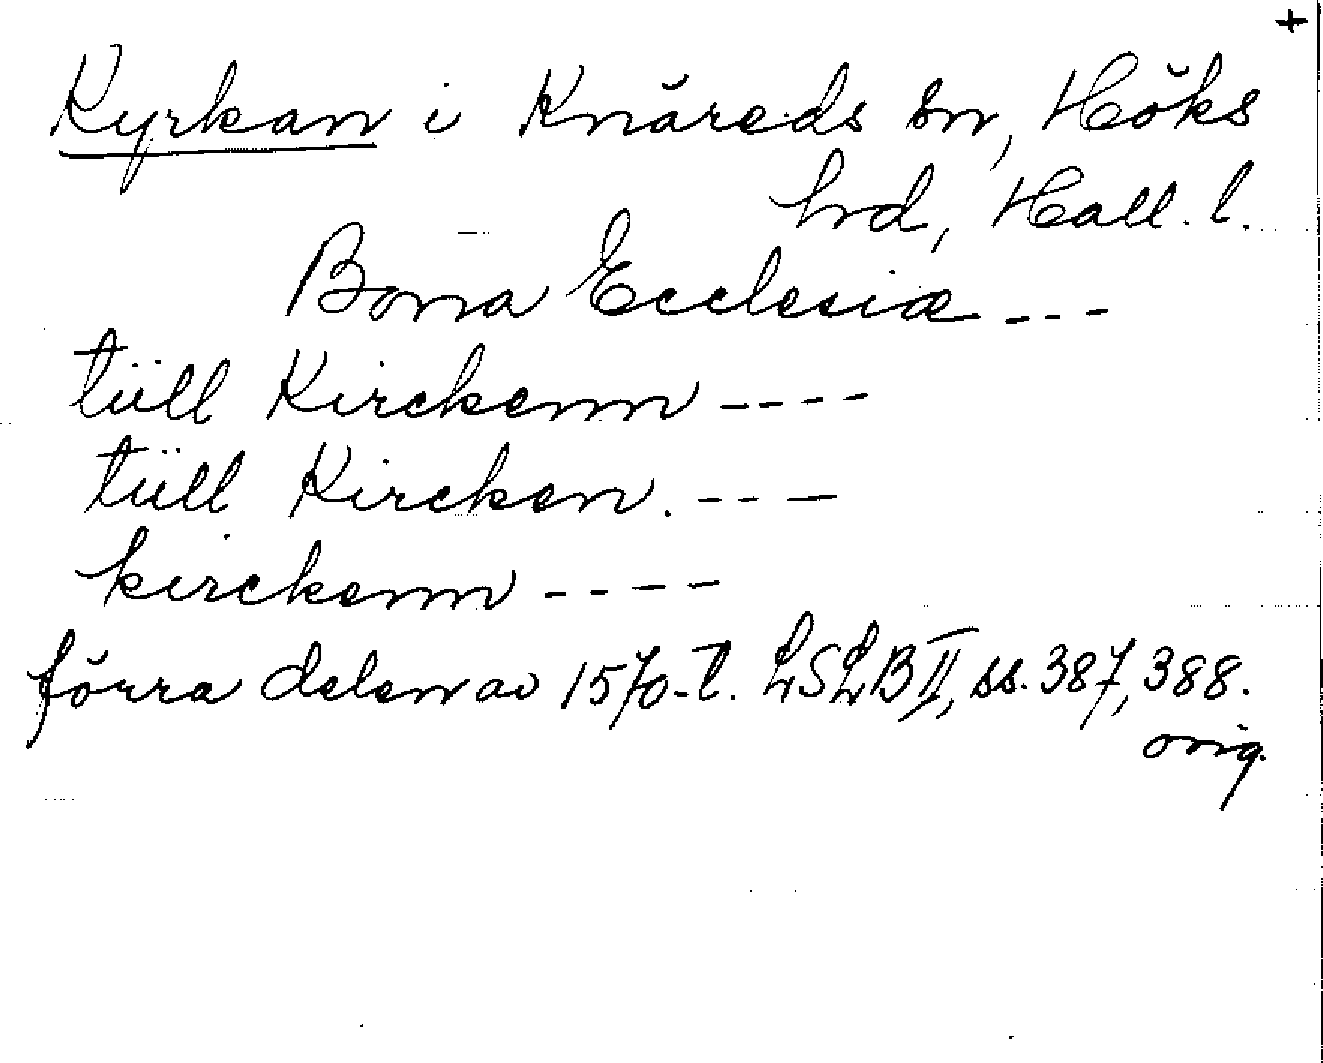 +
Kyrkan i Knäreds sn, Höks
hrd, Hall. l.
Bona Ecclesiæ ---
tüll Kirckenn ----
tüll Kircken. ---
kirckenn ----
förra delen av 1570-t. LSLB II, ss. 387, 388.
orig.